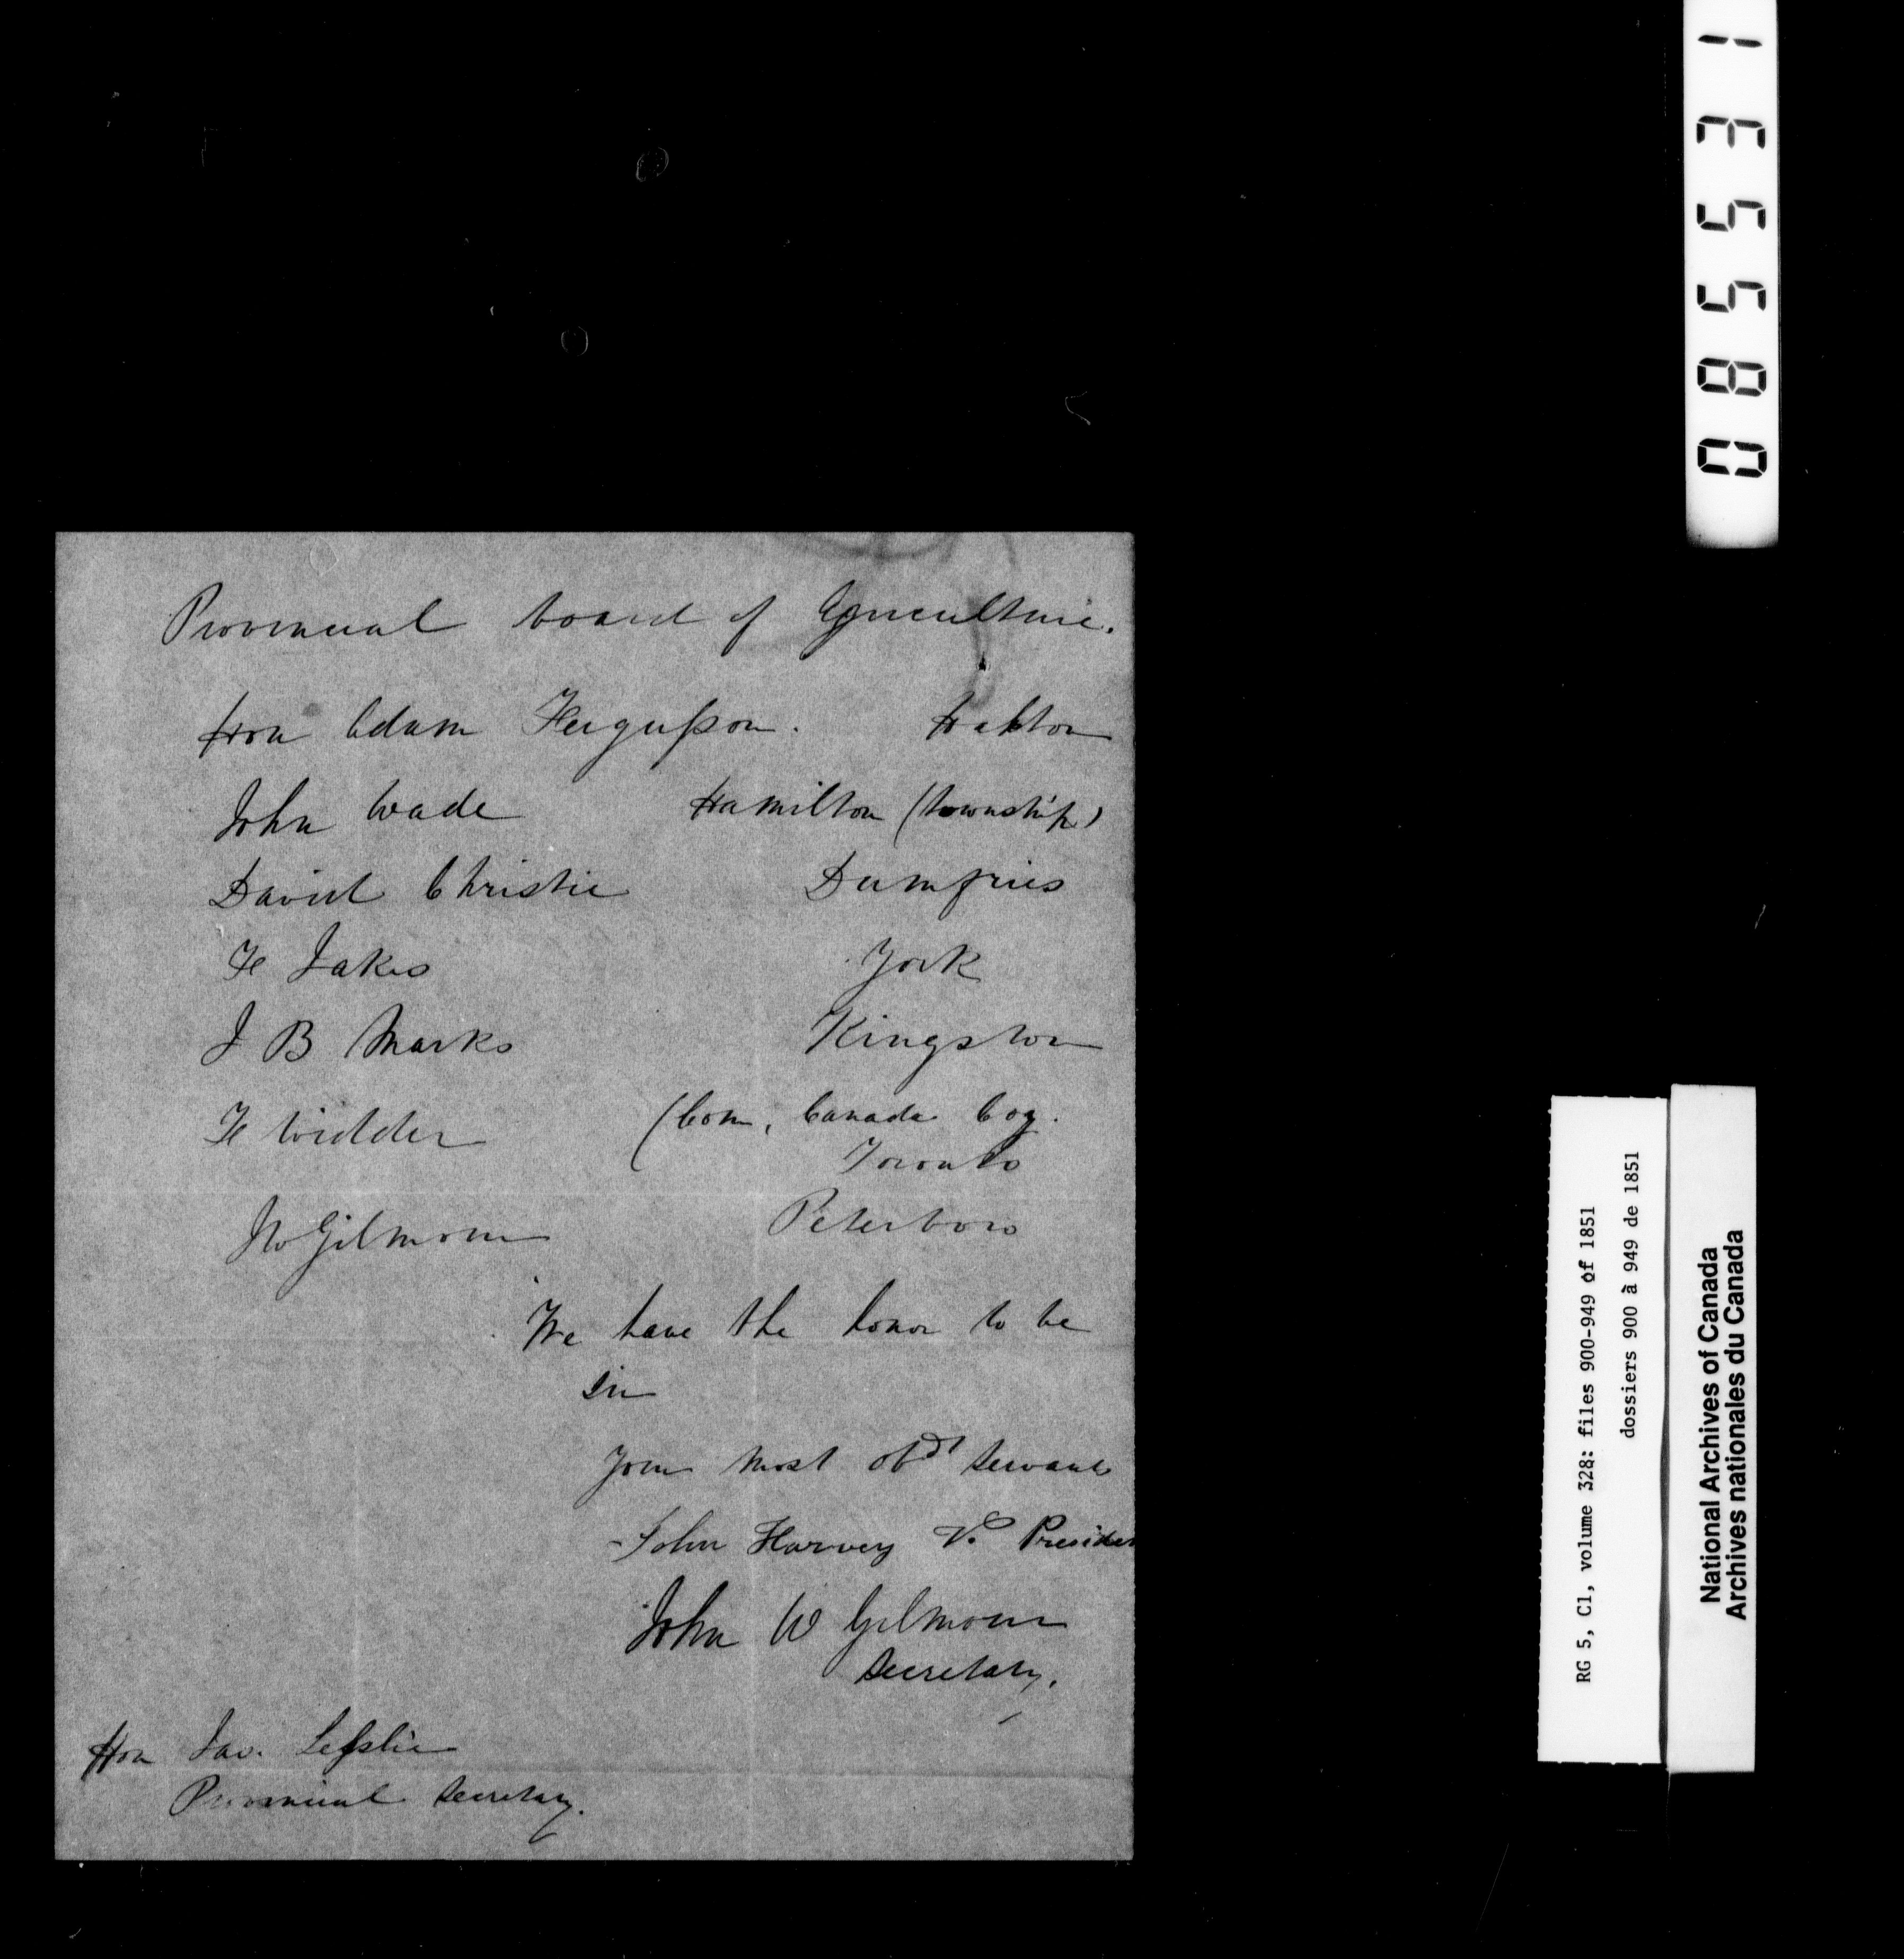 Provincial board of Agriculture.
Hon Adam Fergusson. Halton
John Wade Hamilton (township)
David Christie Dumfries
F Jakes York
J B Marks Kingston
F Widder (Com, Canada Coy.
Toronto
Gilmour Peterboro
We have the honor to be
Sir
Your most obdt servants
John Harvey V. Presiden
John W Gilmour
Secretary.
Hon Jas. Lesslie
Provincial Secretary.
085531
RG 5, C1, volume 328: files 900-949 of 1851
dossiers 900 à 949 de 1851
National Archives of Canada
Archives nationales du Canada